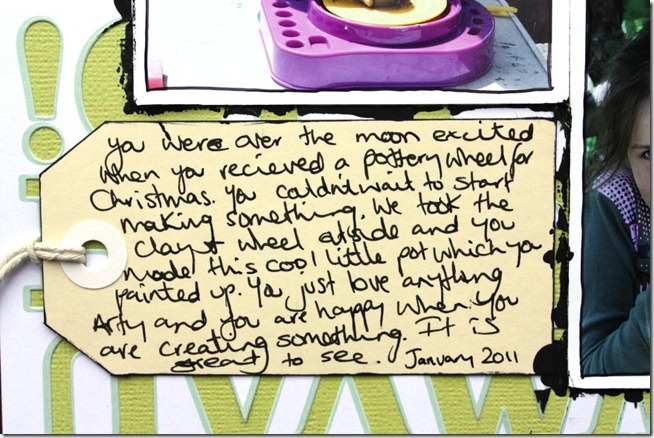 you were over the moon excited
when you recieved a pottery wheel for
Christmas. You couldn't wait to start
making something. We took the
clay + wheel outside and you
made this cool little pot which you
painted up. You just love anything
Arty and you are happy when you
are creating something. It is
great to see. January 2011